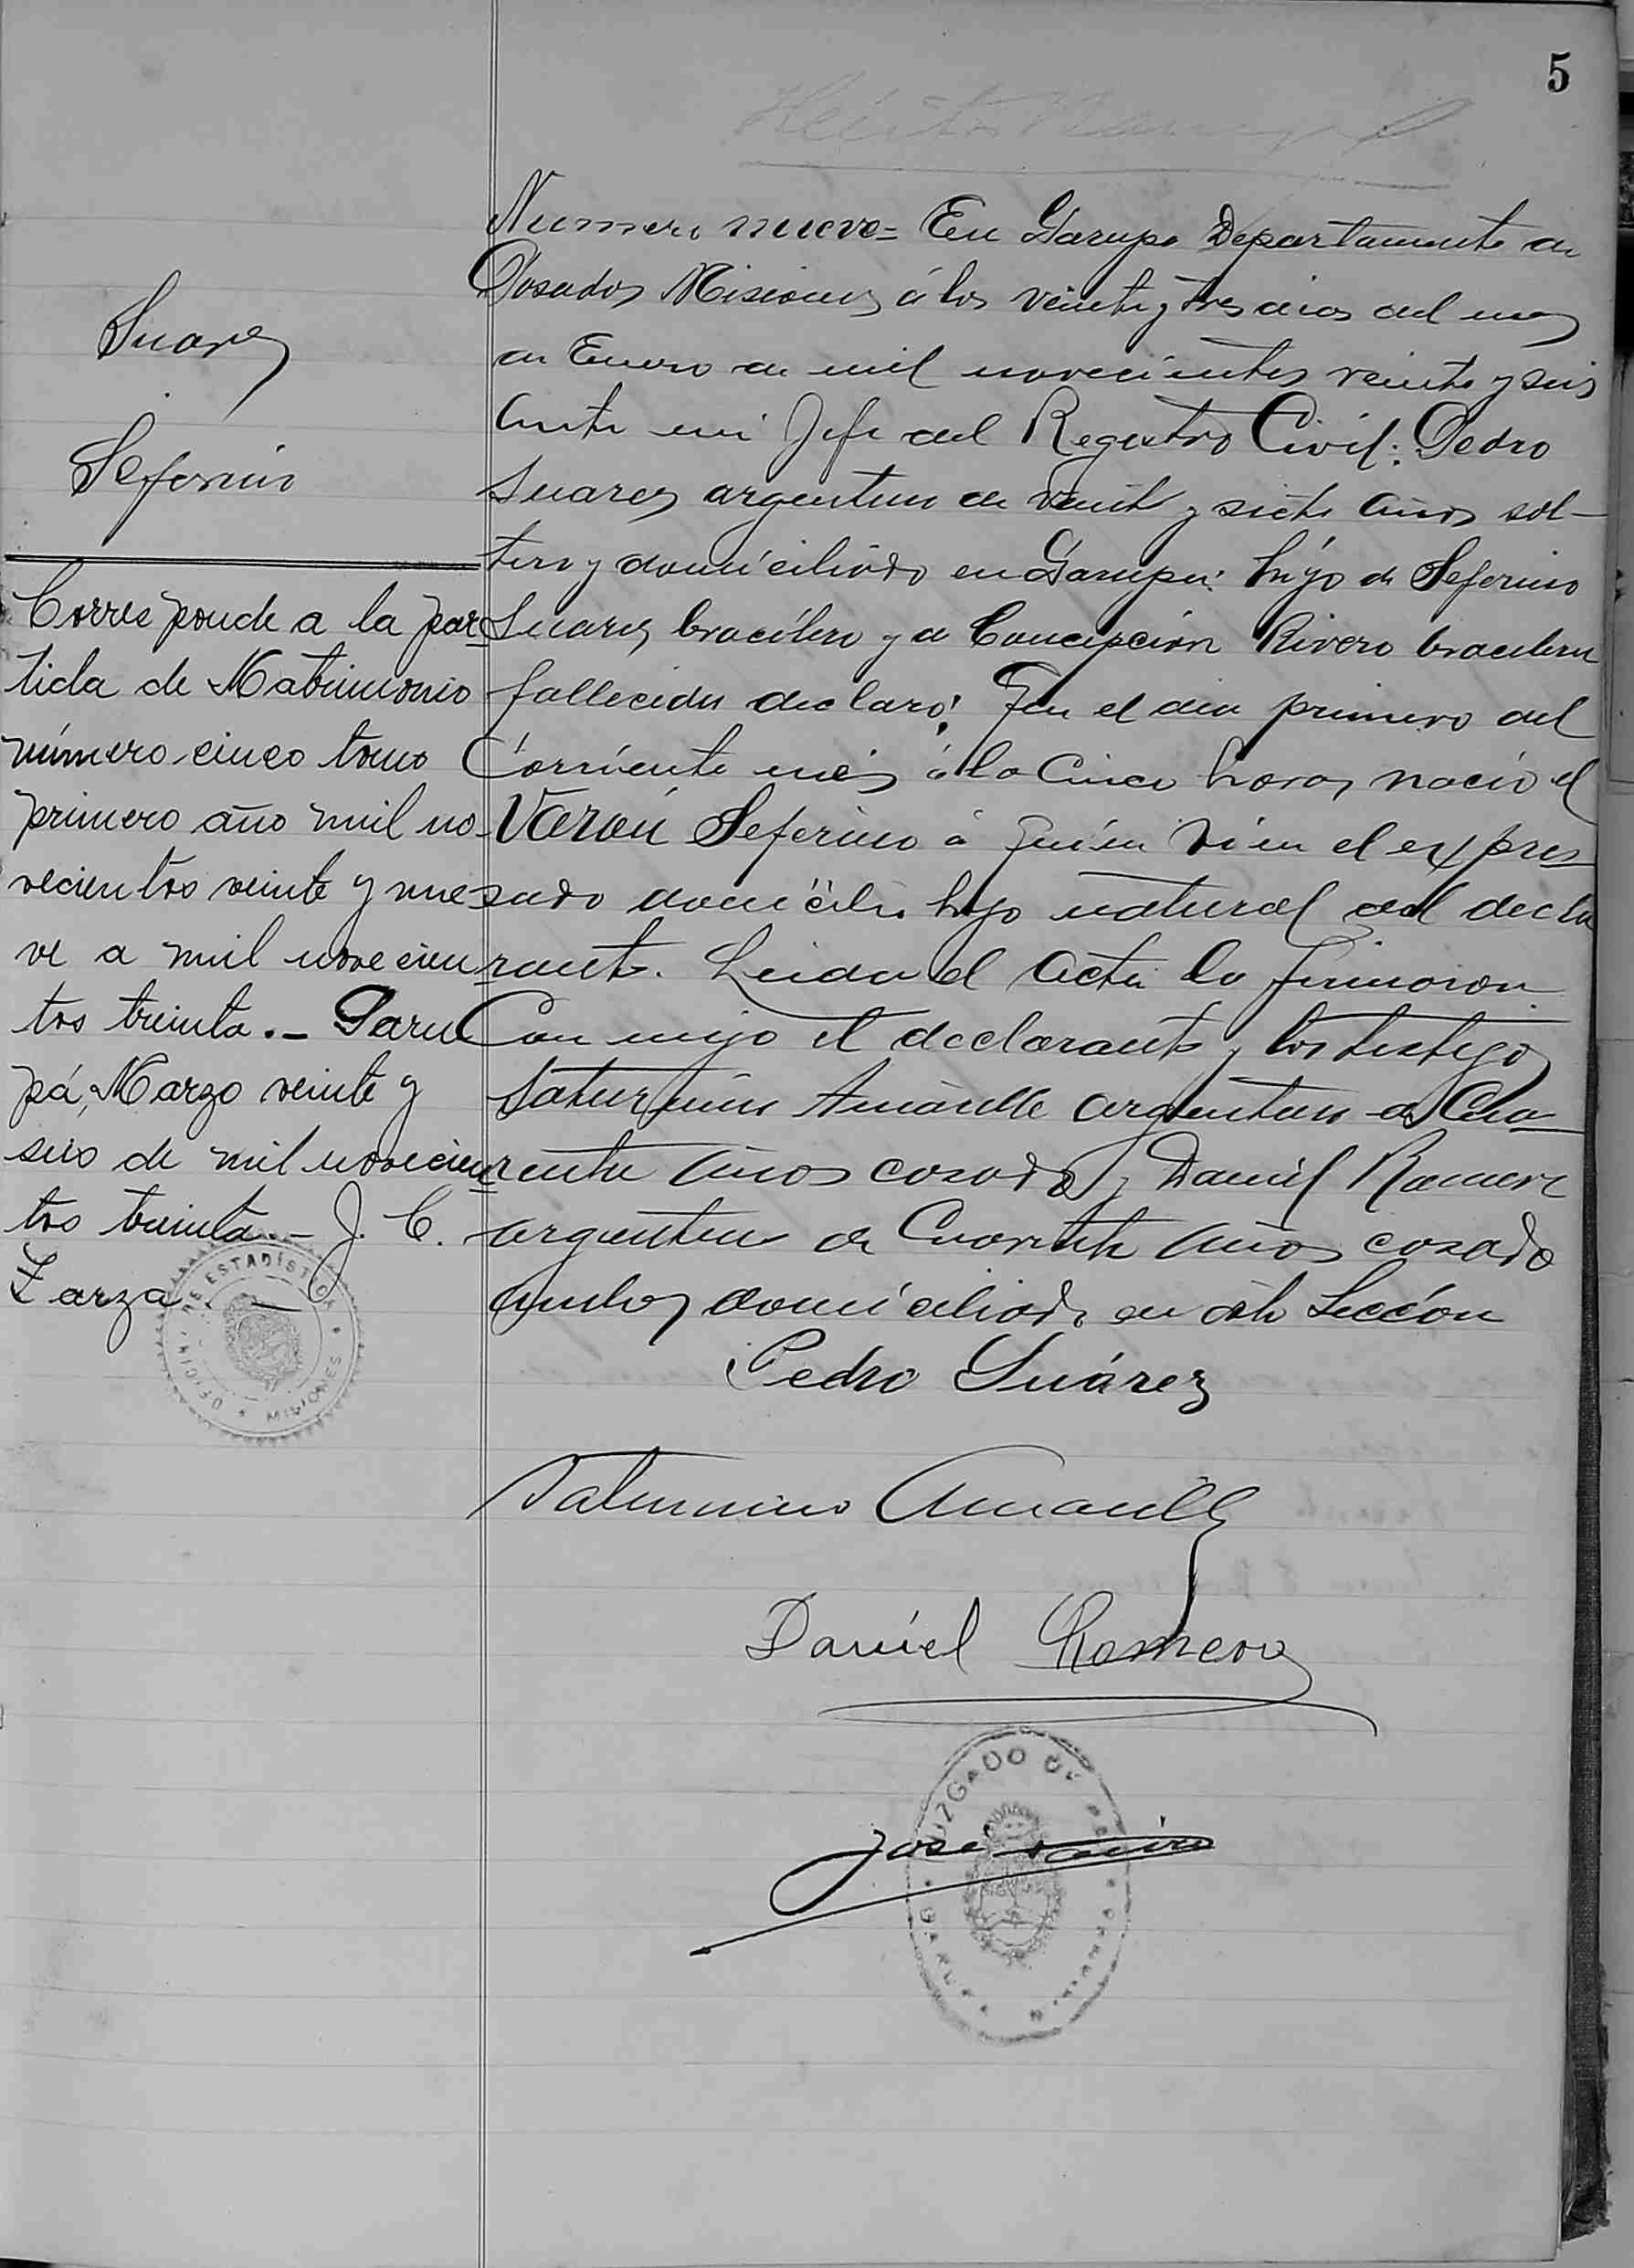 5
Suarez
Seferino
Corresponde a la par
tida de Matrimonio
número cinco tomo
primero año mil no
vecientos veinte y nue
ve a mil novecien
tos treinta.- Garu
pá, Marzo veinte y
seis de mil novecien
tos treinta - J. C.
Zarza -
OFICINA DE ESTADÍSTICA * MISIONES *
Numero nueve= En Garupa Departamento de
Posadas Misiones á los veinte y tres dias del mes
de Enero de mil novecientos veinte y seis
Ante mi Jefe del Registro Civil: Pedro
Suarez argentino de veinte y siete años sol-
tero y domiciliado en Garupa: hijo de Seferino
Suarez bracilero y de Concepción Rivero bracilera
fallecida declaro: Que el dia primero del
Corriente mes á la Cinco horas nació el
Varón Seferino á quien vi en el expres
sado domicilio hijo natural del decla
rante. Leida el Acta la firmaron
Con migo el declarante y los testigos
Saturnino Amarilla argentino de Cua-
renta años casado y Daniel Romero
argentino de Cuarenta años casado
ambos domiciliado en esta Sección
Pedro Suárez
Saturnino Amarilla
Daniel Romero
José
JUZGADO DE PAZ
GARUPA